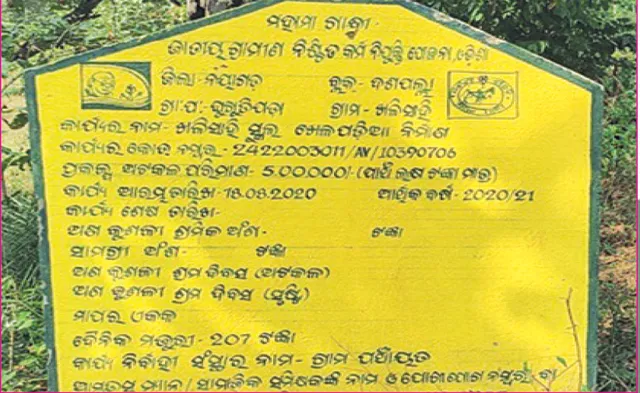 ମହାତ୍ମା ଗାନ୍ଧୀ
ଜାତୀୟ ଗ୍ରାମୀଣ ନିଶ୍ଚିତ କର୍ମ ନିଯୁକ୍ତି ଯୋଜନା, ଓଡ଼ିଶା
ଜିଲା- ନୟାଗଡ଼ ବ୍ଲକ- ଦଶପଲ୍ଲା
ଗ୍ରା.ପଂ- ଗ୍ରାମ- ଖଳିସାହି
କାର୍ଯ୍ୟର ନାମ- ଖଳିସାହି ସ୍କୁଲ ଖେଳପଡ଼ିଆ ନିର୍ମାଣ
କାର୍ଯ୍ୟର କୋଡ଼ ନମ୍ବର- 2422003011/AV/10390706
ପ୍ରକଳ୍ପ ଅଟକଳ ପରିମାଣ- 5,00,000/- (ପାଞ୍ଚ ଲକ୍ଷ ଟଙ୍କା ମାତ୍ର)
କାର୍ଯ୍ୟ ଆରମ୍ଭ ତାରିଖ- 18.08.2020 ଆର୍ଥିକ ବର୍ଷ- 2020/21
କାର୍ଯ୍ୟ ଶେଷ ତାରିଖ-
ଅଣ କୁଶଳୀ ଶ୍ରମିକ ଅଂଶ- ଟଙ୍କା
ସାମଗ୍ରୀ ଅଂଶ- ଟଙ୍କା
ଅଣ କୁଶଳୀ ଶ୍ରମ ଦିବସ (ଅଟକଳ)
ଅଣ କୁଶଳୀ ଶ୍ରମ ଦିବସ (ସୃଷ୍ଟି)
ମାପର ଏକକ
ଦୈନିକ ମଜୁରୀ- 207 ଟଙ୍କା
କାର୍ଯ୍ୟ ନିର୍ବାହୀ ସଂସ୍ଥାର ନାମ- ଗ୍ରାମ ପଞ୍ଚାୟତ
ନାମ ଓ ଯୋଗାଯୋଗ ନମ୍ବର